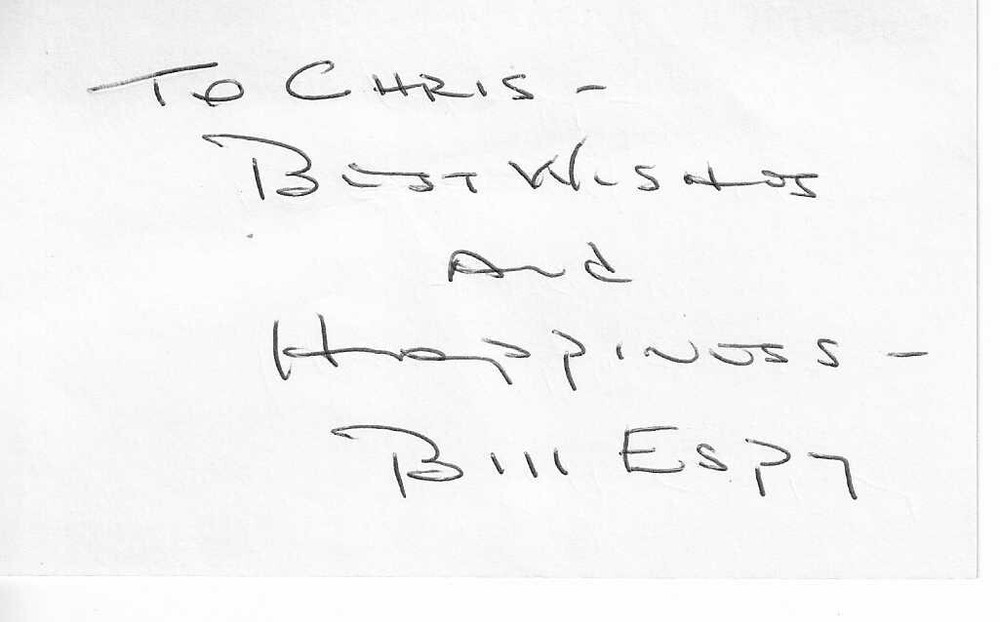 To CHRIS -
BEST WISHES
And
HAPPINESS -
Bill Espy